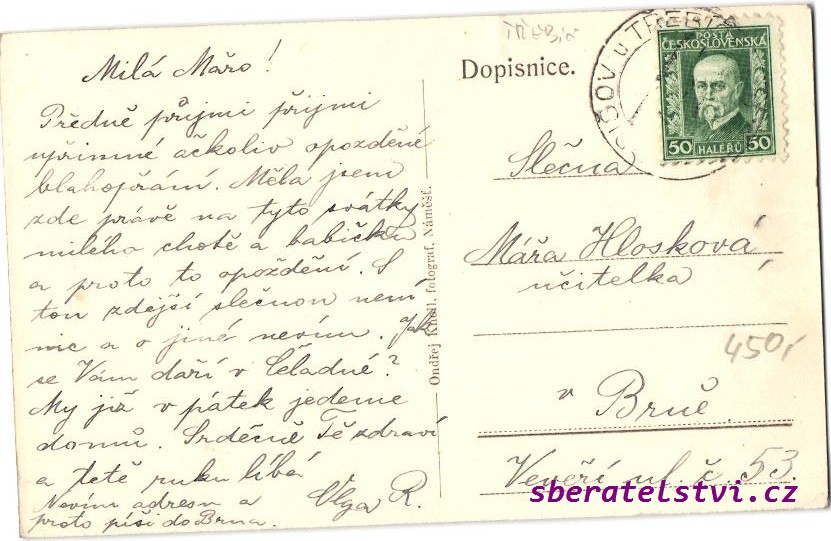 Milá Mářo!
Předně přijmi přijmi
upřimné ačkoliv opozděné
blahopřání. Měla jsem
zde právě na tyto svátky
milého chotě a babičku
a proto to opoždění. S
tou zdejší slečnou není
nic a o jiné nevím. Jak
se Vám daří v Čeladné?
My již v pátek jedeme
domů. Srdečně Tě zdraví
a tetě ruku líbá
Olga R.
Nevím adresu a
proto píši do Brna.
Ondřej Knoll, fotograf, Náměšť.
TŘEBÍČ
Dopisnice.
OV u TŘEBÍČE
POŠTA
ČESKOSLOVENSKÁ
50 HALÉŘŮ 50
Slečna
Mářa Hlosková
učitelka
450,-
v Brně
Veveří ul. č 53.
sberatelstvi.cz